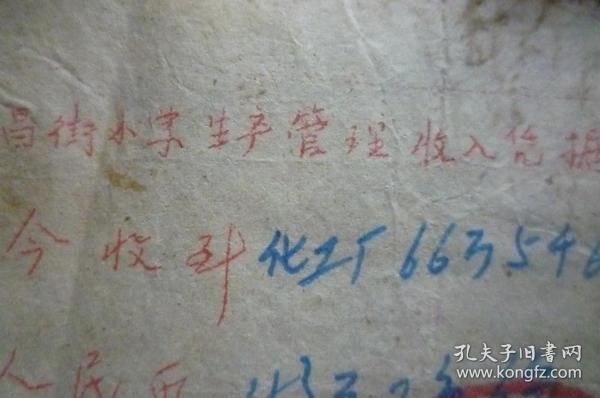 昌街小学生产管理收入凭据
今收到化工厂663546
人民币
孔夫子旧书网
www.kongfz.com